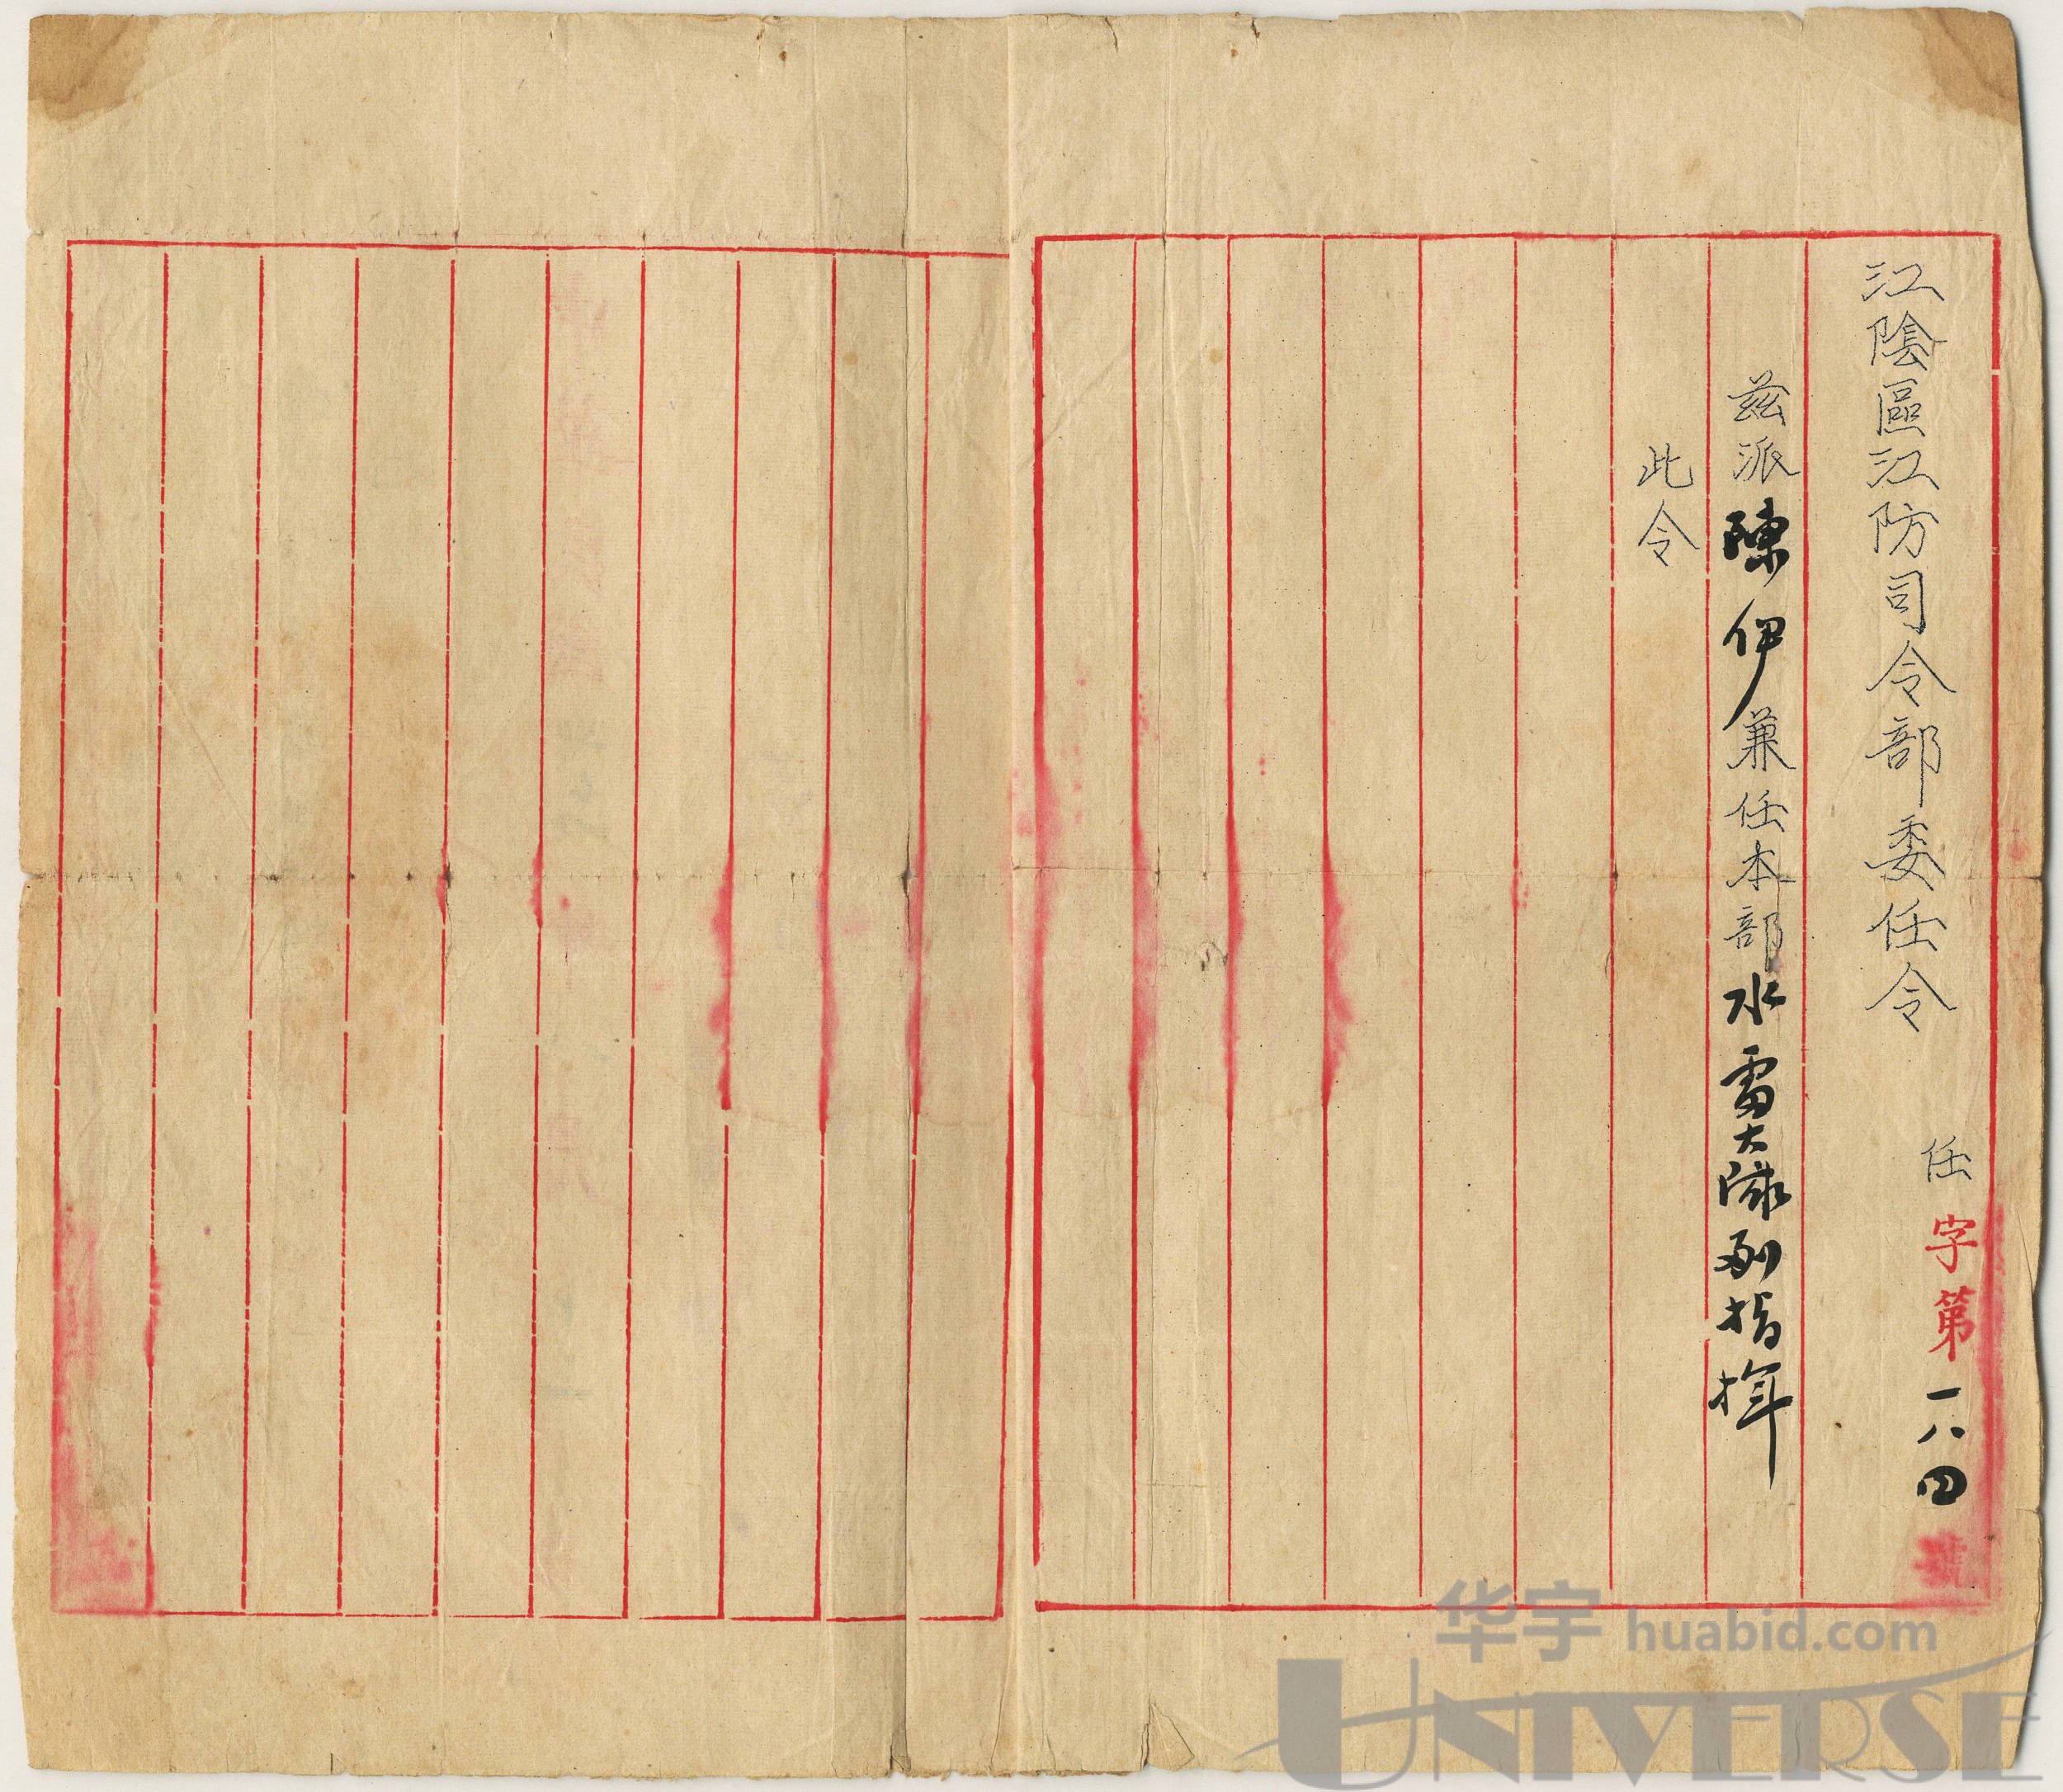 江陰區江防司令部委任令
任字第一八四號
茲派陳伊兼任本部水雷大隊副指揮
此令
华宇 huabid.com
UNIVERSE